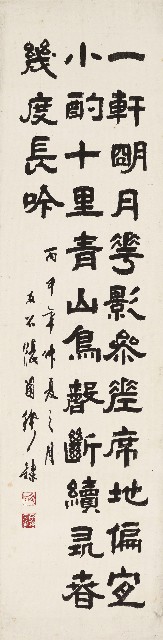 一軒朙月華影參差席地偏宜
小酌十里青山鳥聲斷續尋春
幾度長吟
丙申年仲夏之月
張